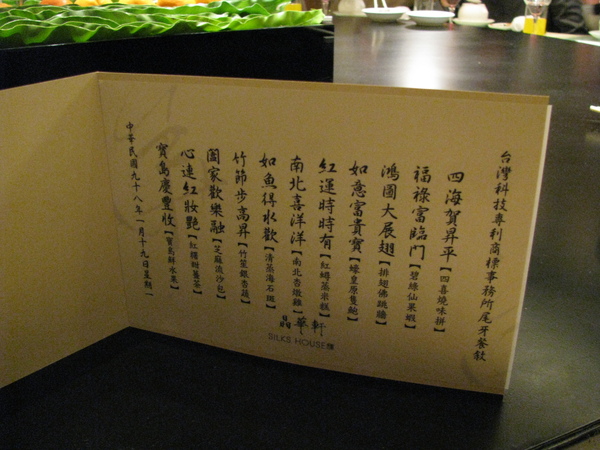 台灣科技專利商標事務所尾牙餐敘
四海賀昇平【四喜燒味拼】
福祿富臨門【碧綠仙果蝦】
鴻圖大展翅【排翅佛跳牆】
如意富貴寶【蠔皇原隻鮑】
紅運時時有【紅蟳蒸米糕】
南北喜洋洋【南北杏燉雞】
如魚得水歡【清蒸海石斑】
竹節步高昇【竹笙銀杏蔬】
闔家歡樂融【芝麻流沙包】
心連紅妝艷【紅糖甜薑茶】
寶島慶豐收【寶島鮮水果】
中華民國九十八年一月十九日星期一
晶華軒
SILKS HOUSE